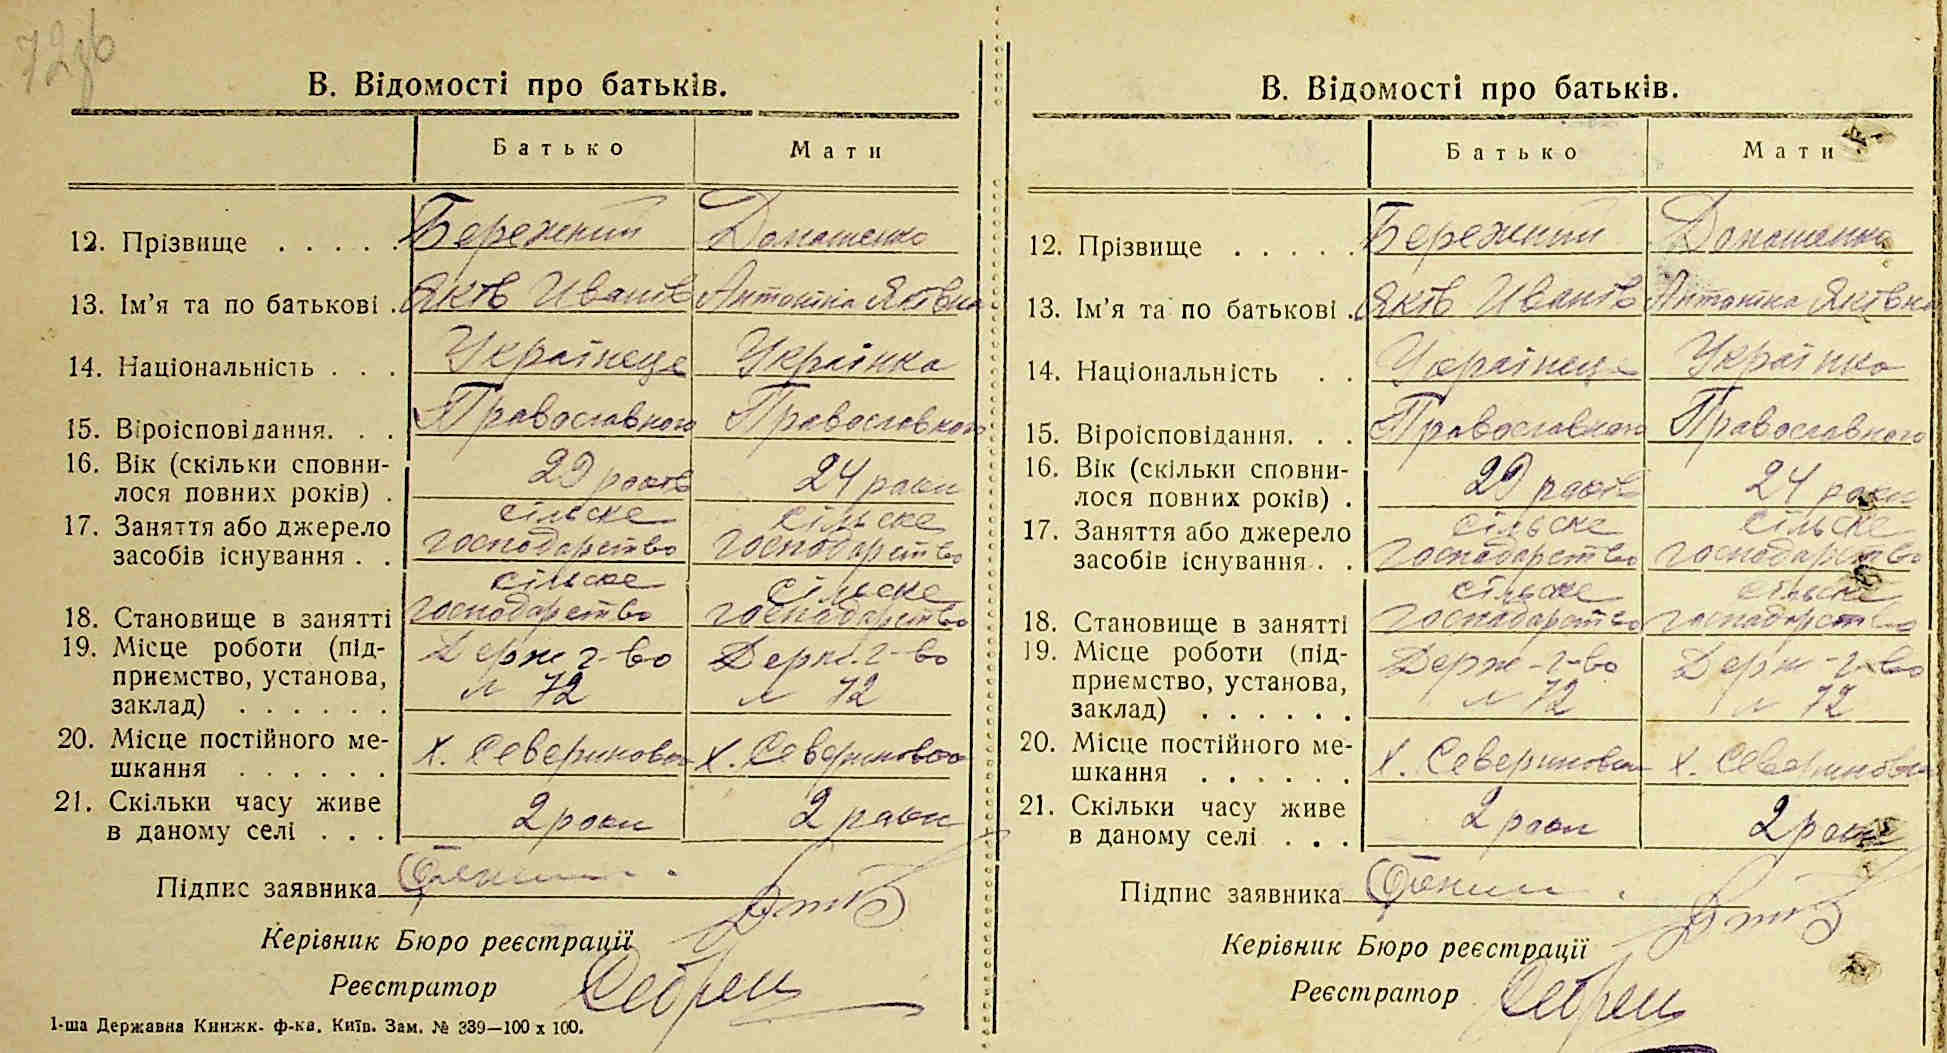 72
В. Відомості про батьків.
Батько Мати
12. Прізвище . . . . . Бережний Домашенко
13. Ім'я та по батькові . Яків Иванів Антоніна Яківна
14. Національність . . . Українець Українка
15. Віроісповідання. . . Православного Православного
16. Вік (скільки сповни-
лося повних років) . 29 років 24 роки
17. Заняття або джерело сільске сільске
засобів існування . . господарство господарство
сільске сільске
18. Становище в занятті господарство господарство
19. Місце роботи (під- Держ г-во Держ. г-во
приємство, установа, № 72 № 72
заклад) . . . . . .
20. Місце постійного ме- х. Севериновка х. Севериновка
шкання . . . . . .
21. Скільки часу живе
в даному селі . . . 2 роки 2 роки
Підпис заявника
Керівник Бюро реєстрації
Реєстратор
1-ша Державна Книжк. ф-ка. Київ. Зам. № 339—100 х 100.
В. Відомості про батьків.
Батько Мати
12. Прізвище . . . . . Бережний Домашенко
13. Ім'я та по батькові . Яків Иванів Антоніна Яківна
14. Національність . . Українець Українка
15. Віроісповідання. . . Православного Православного
16. Вік (скільки сповни-
лося повних років) . 29 років 24 роки
17. Заняття або джерело сільске сільске
засобів існування . . господарство господарство
сільске сільске
18. Становище в занятті господарство господарство
19. Місце роботи (під- Держ-г-во Держ-г-во
приємство, установа, № 72 № 72
заклад) . . . . . .
20. Місце постійного ме- х. Севериновка х. Севериновка
шкання . . . . . .
21. Скільки часу живе
в даному селі . . . 2 роки 2 роки
Підпис заявника
Керівник Бюро реєстрації
Реєстратор